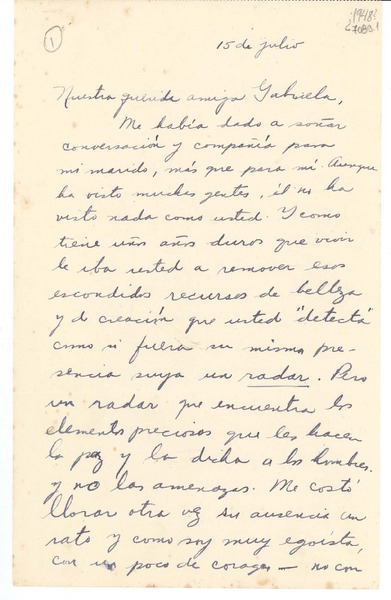 1
¿1948?
15 de julio
Nuestra querida amiga Gabriela,
Me había dado a soñar
conversación y compañía para
mi marido, más que para mí. Aunque
ha visto muchas gentes, él no ha
visto nada como usted. Y como
tiene unos años duros que vivir
le iba usted a remover esos
escondidos recursos de belleza
y de creación que usted "detecta"
como si fuera su misma pre-
sencia suya un radar. Pero
un radar que encuentra los
elementos preciosos que les hacen
la paz y la dicha a los hombres
y no las amenazas. Me costó
llorar otra vez su ausencia un
rato y como soy muy egoísta,
con un poco de corage — no con